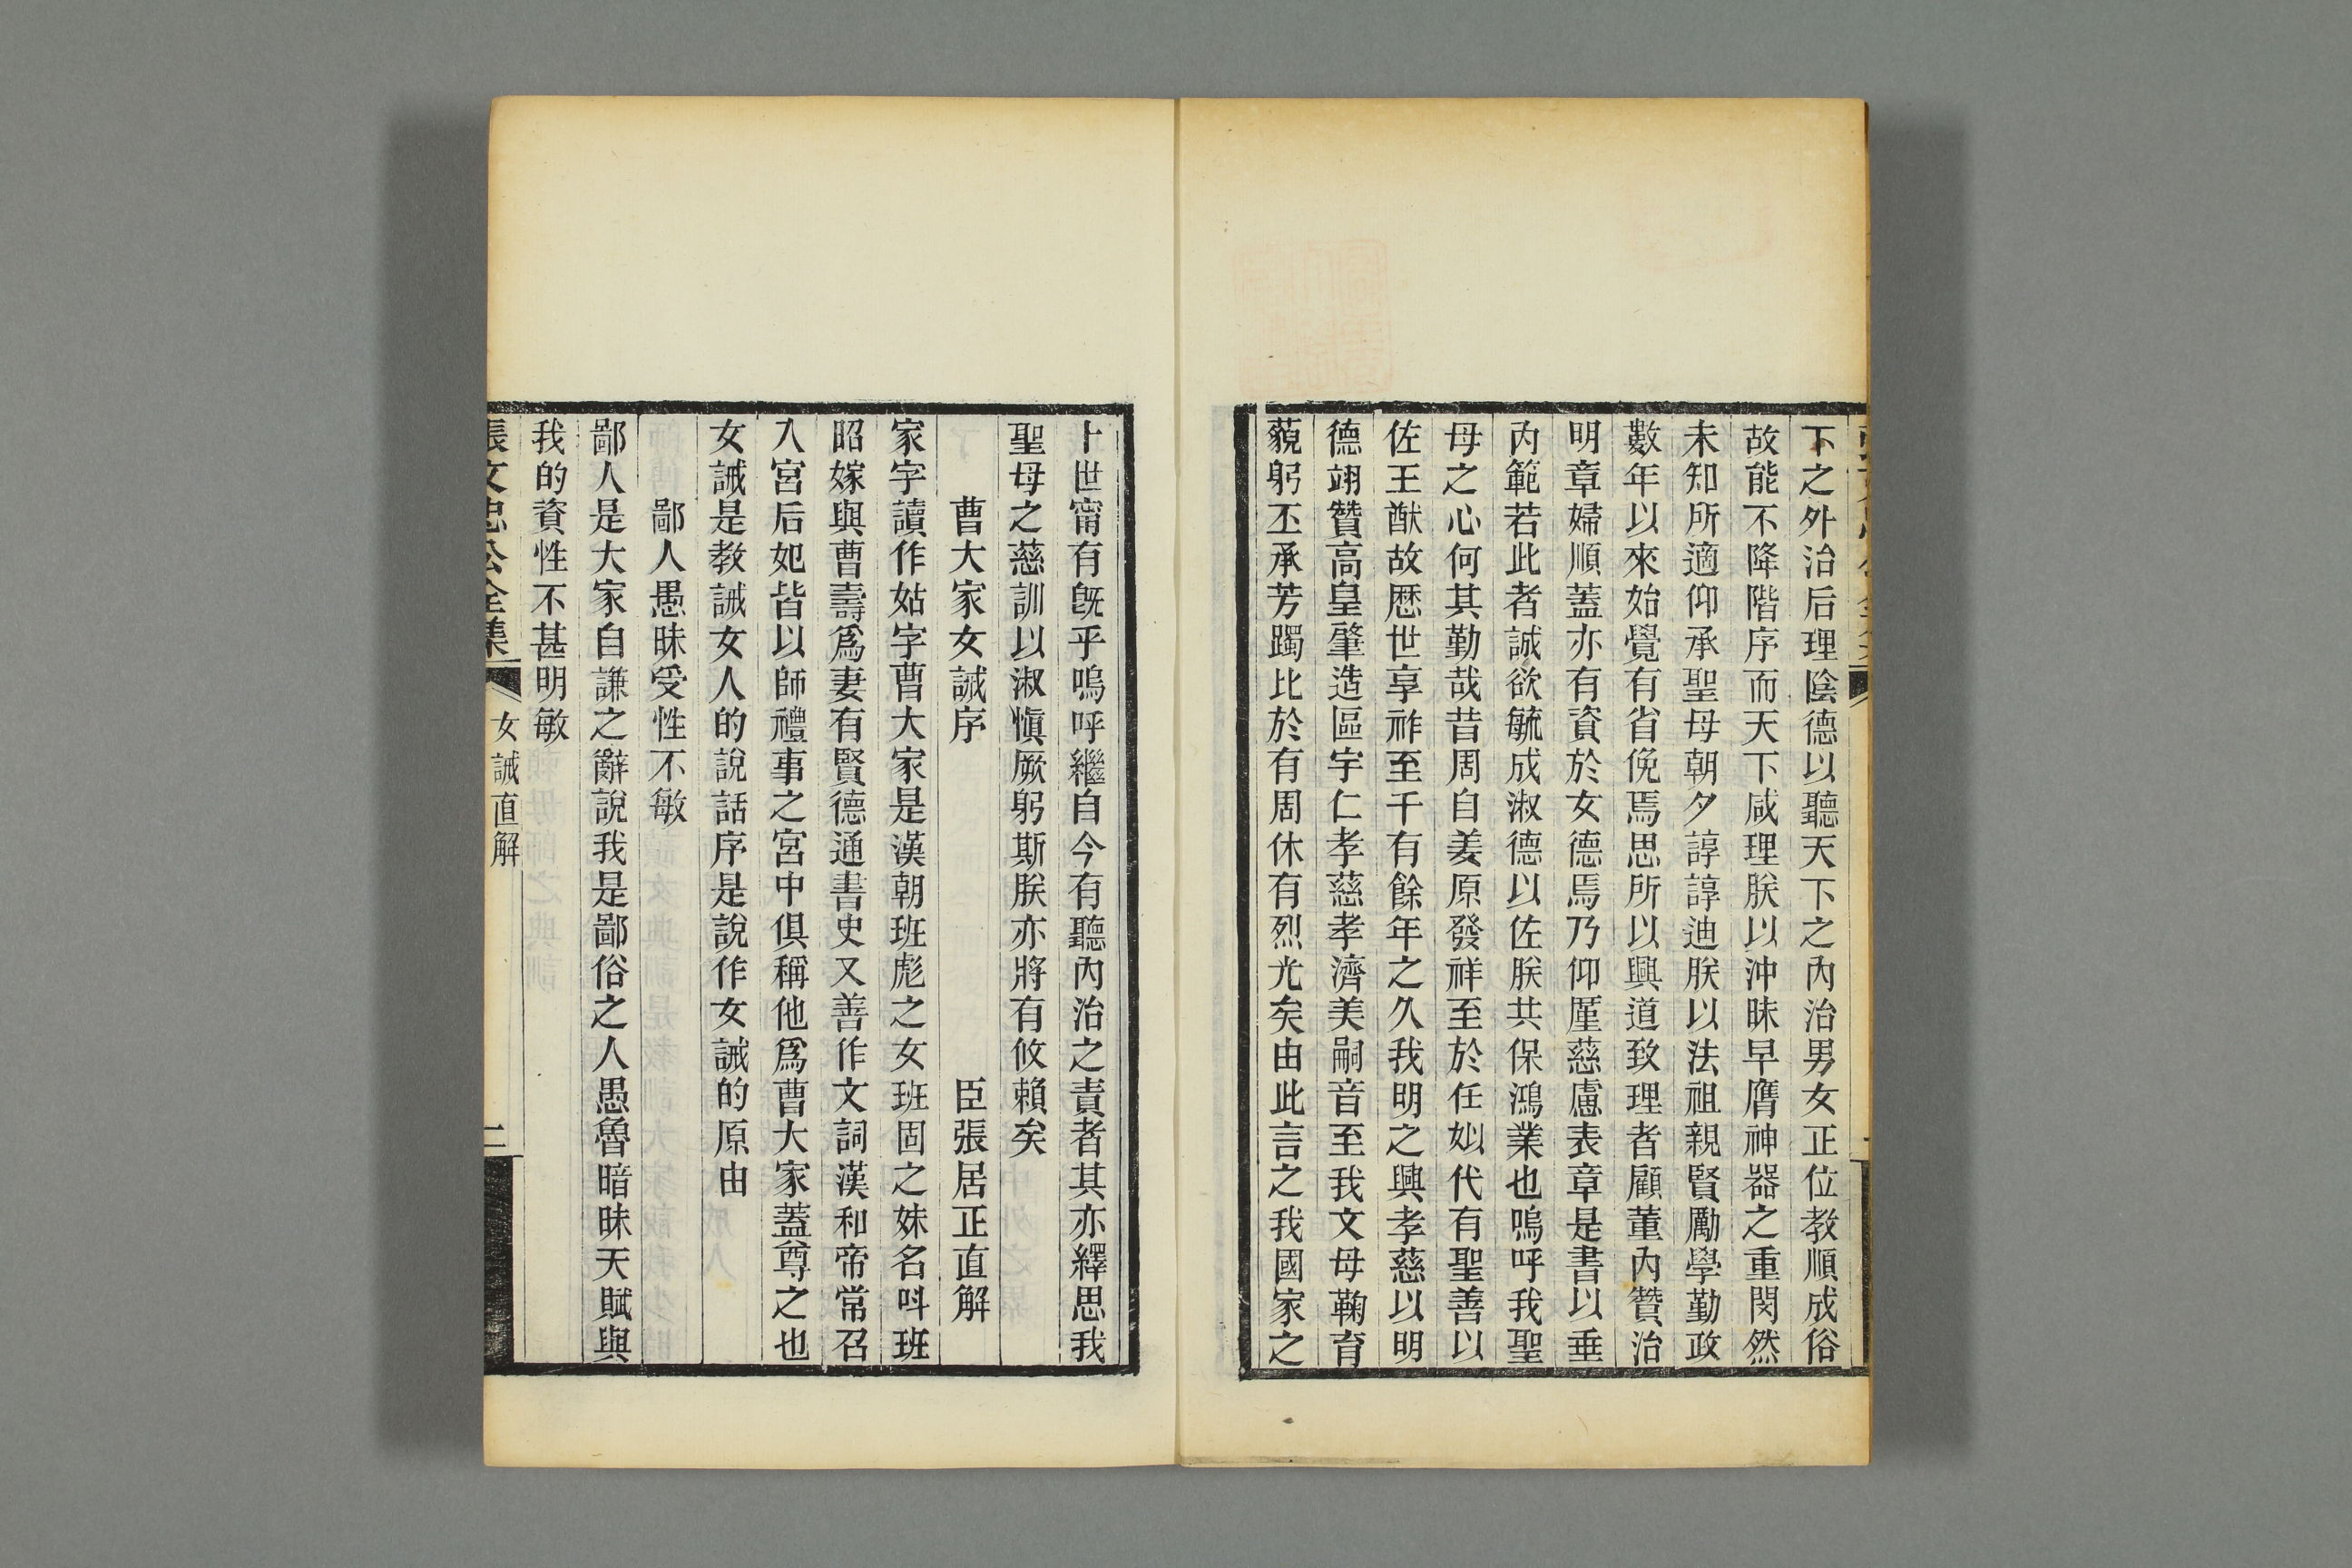 下之外治后理陰德以聽天下之內治男女正位教順成俗
故能不降階序而天下咸理朕以沖昧早膺神器之重閔然
未知所適仰承聖母朝夕諄諄迪朕以法祖親賢勵學勤政
數年以來始覺有省俛焉思所以興道致理者顧董內贊治
明章婦順蓋亦有資於女德焉乃仰厪慈慮表章是書以垂
內範若此者誠欲毓成淑德以佐朕共保鴻業也嗚呼我聖
母之心何其勤哉昔周自姜原發祥至於任姒代有聖善以
佐王猷故歷世享祚至千有餘年之久我明之興孝慈以明
德翊贊高皇肇造區宇仁孝慈孝濟美嗣音至我文母鞠育
藐躬丕承芳躅比於有周休有烈光矣由此言之我國家之
卜世甯有旣乎嗚呼繼自今有聽內治之責者其亦繹思我
聖母之慈訓以淑愼厥躬斯朕亦將有攸賴矣
曹大家女誡序 臣張居正直解
家字讀作姑字曹大家是漢朝班彪之女班固之妹名呌班
昭嫁與曹壽爲妻有賢德通書史又善作文詞漢和帝常召
入宮后妃皆以師禮事之宮中俱稱他爲曹大家蓋尊之也
女誡是教誡女人的說話序是說作女誡的原由
鄙人愚昧受性不敏
鄙人是大家自謙之辭說我是鄙俗之人愚魯暗昧天賦與
我的資性不甚明敏
張文忠公全集 女誡直解 二